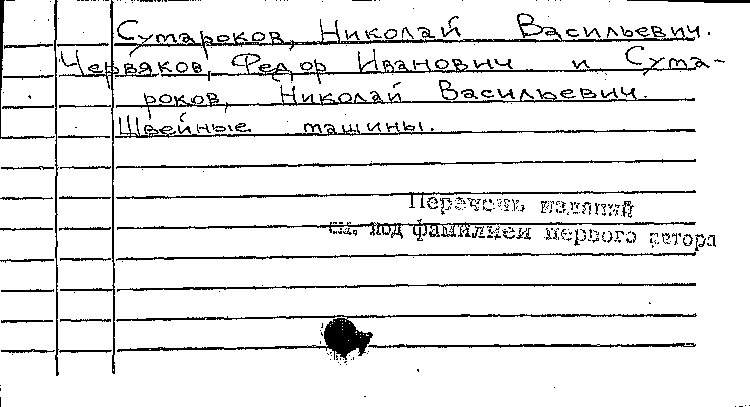 Сутароков, Николай Васильевич.
Червяков, Федор Иванович и Сута-
роков, Николай Васильевич.
Швейные машины.
Перечень изданий
см. под фамилией первого автора